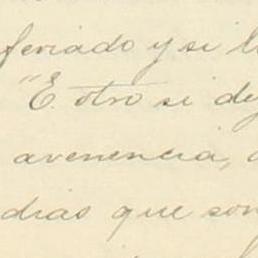 feriado y si l
"E. otro si de
avenencia,
dias que son